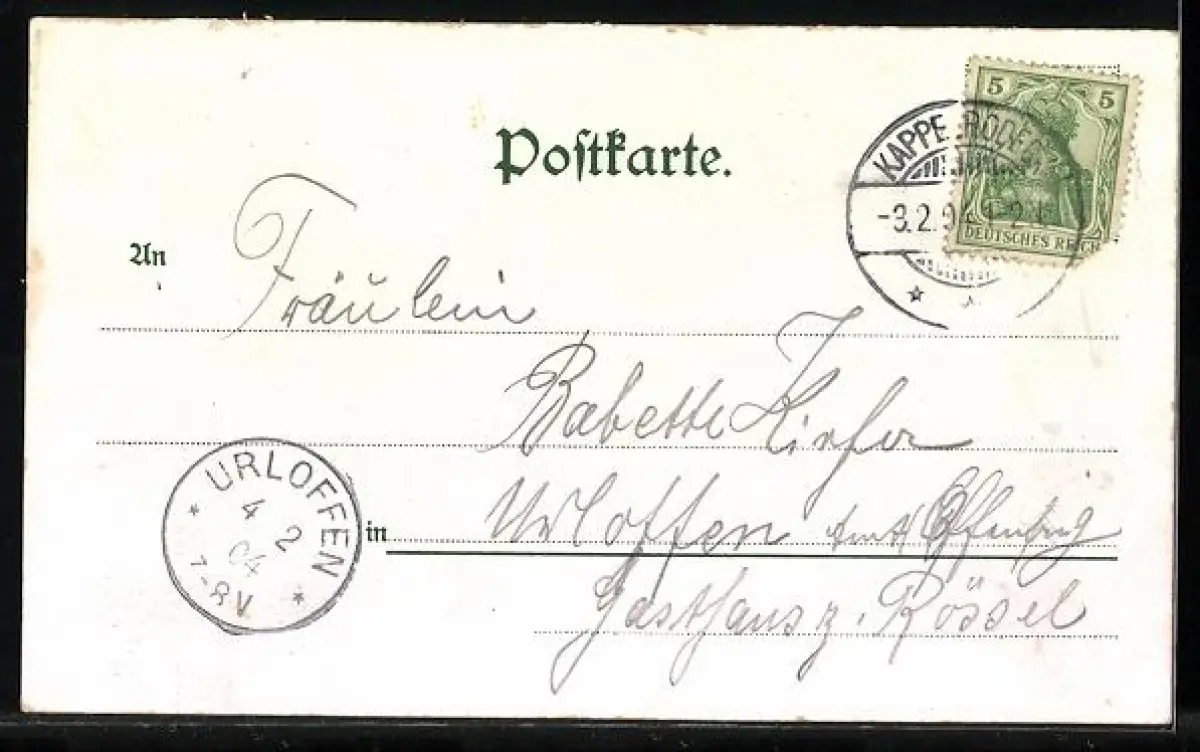 Postkarte.
5 5
DEUTSCHES REICH
KAPPE RODE
-3.2.
An
Fräulein
Babette Kiefer
in Urloffen Amt Offenburg
Gasthaus z. Rössel
* URLOFFEN *
4 2
04
7-8V